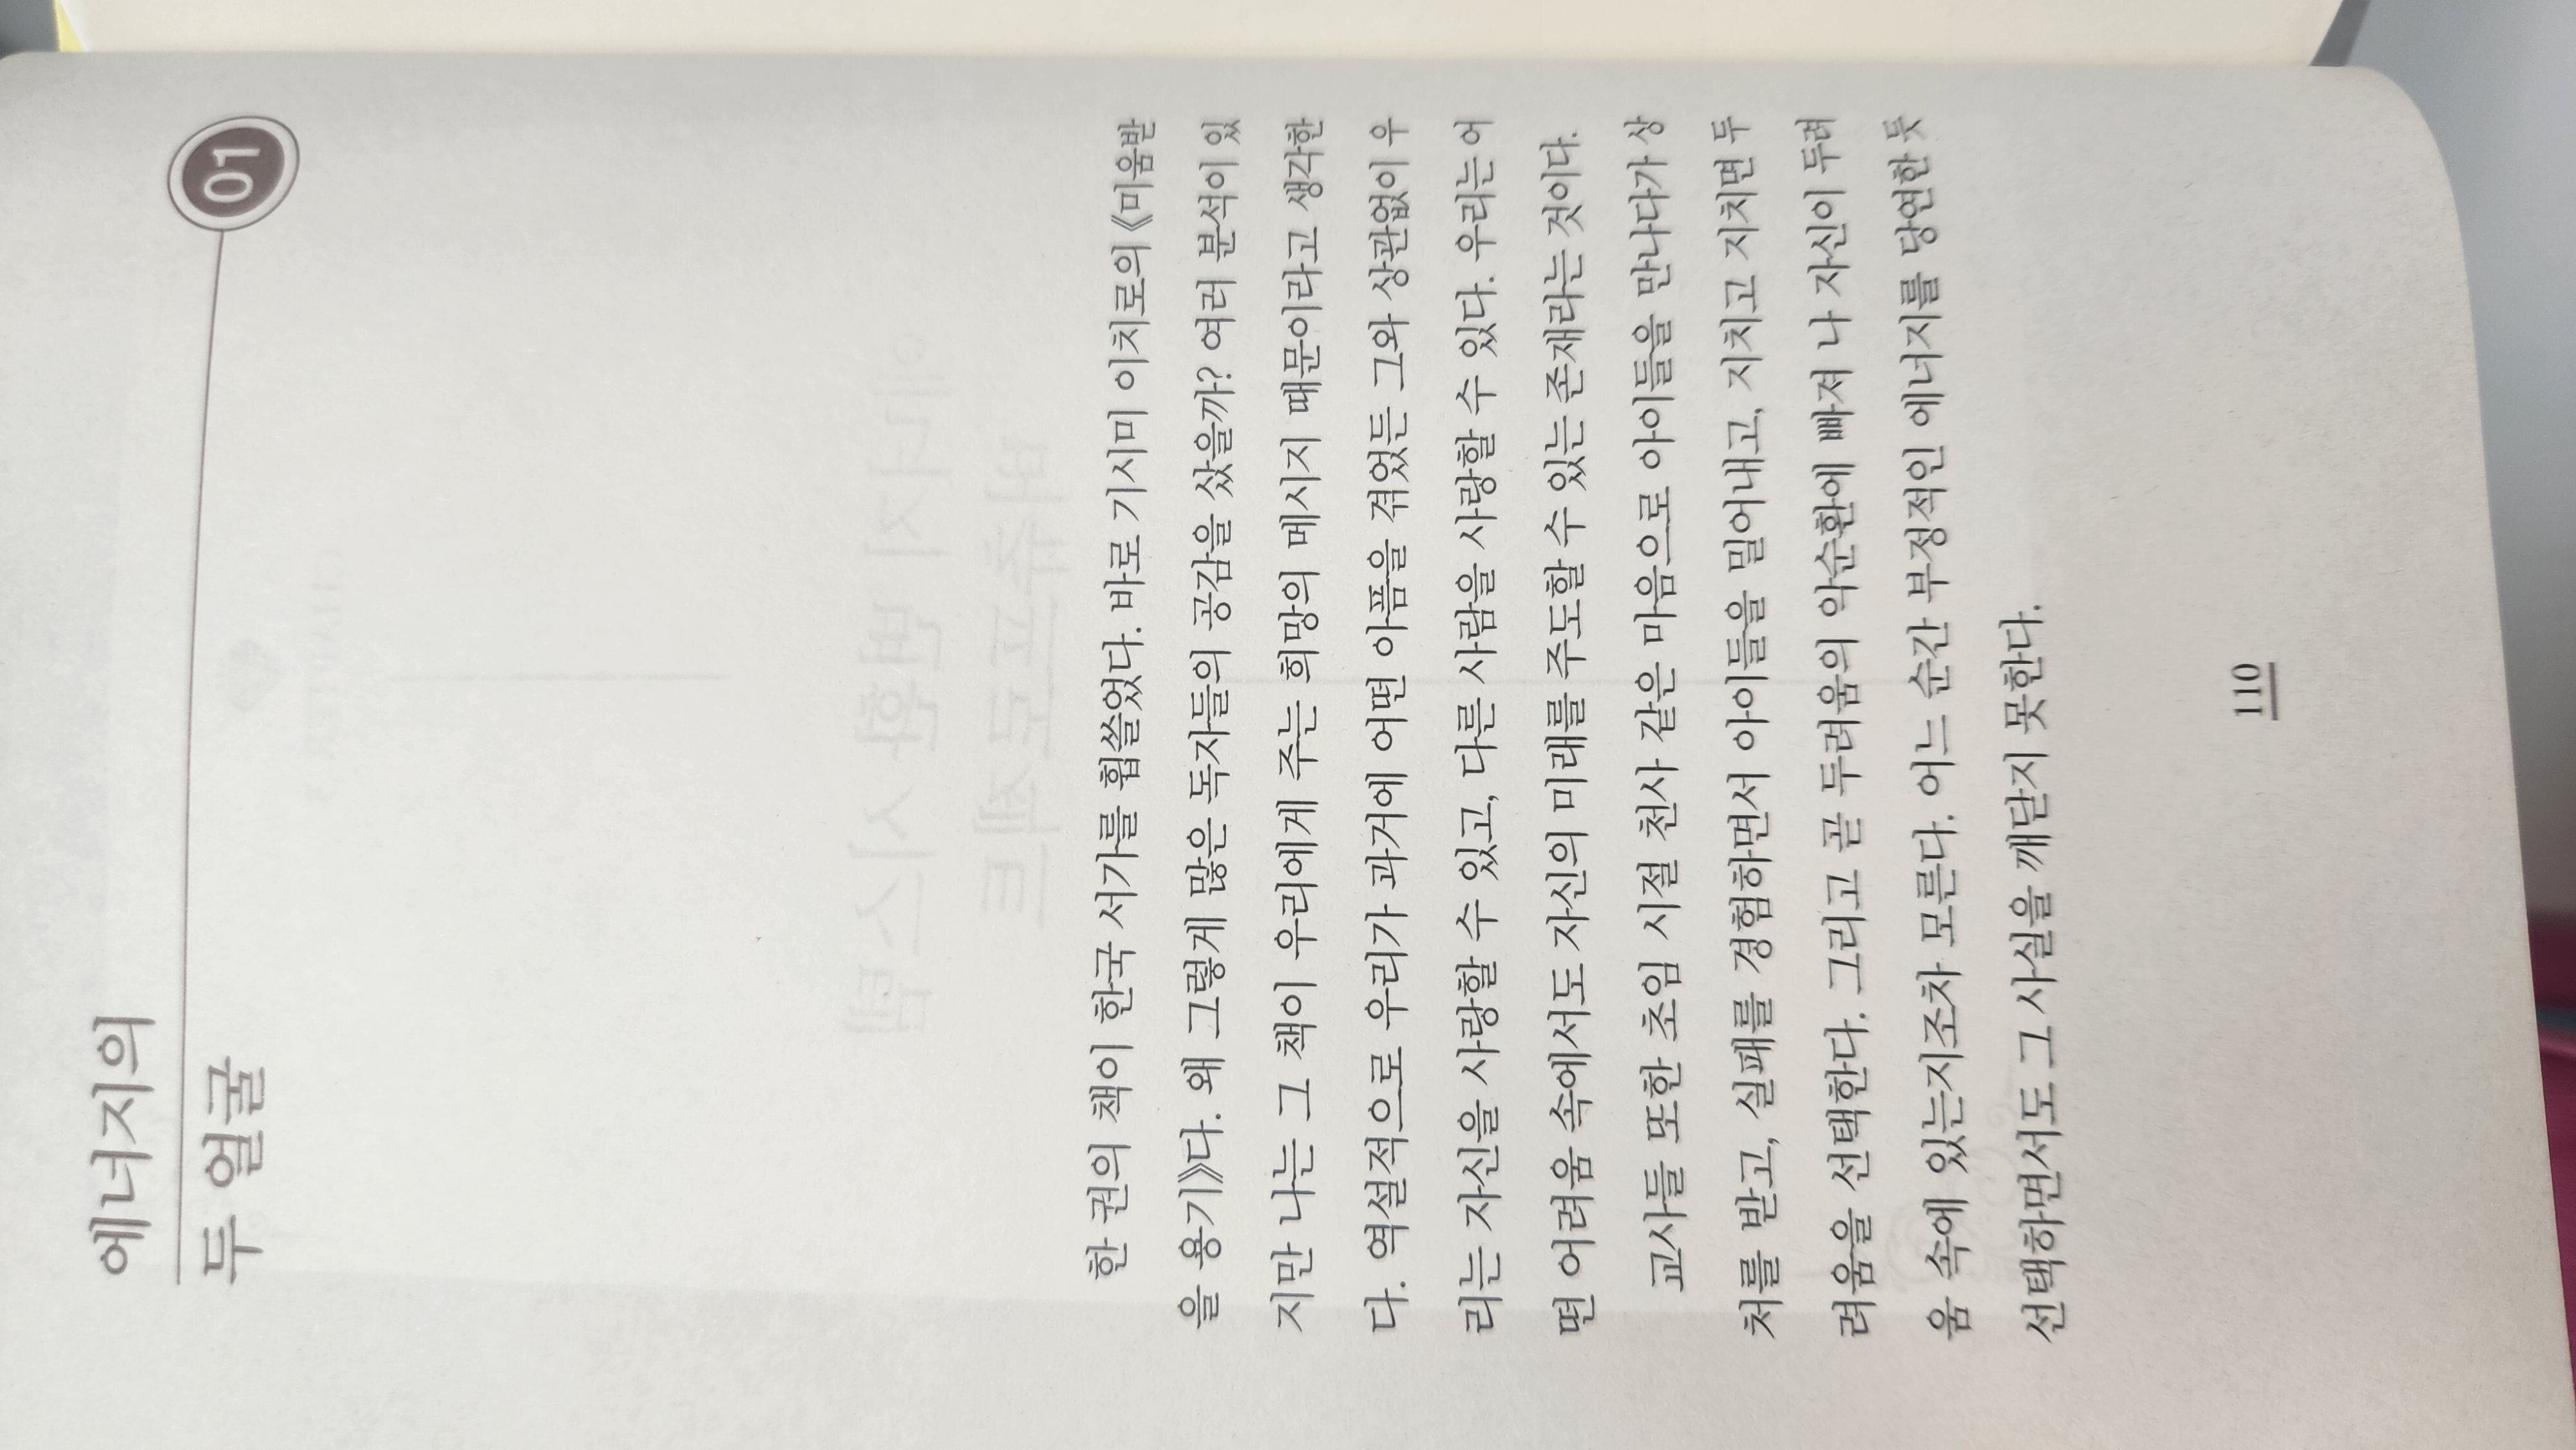 에너지의
두 얼굴
01
한 권의 책이 한국 서가를 휩쓸었다. 바로 기시미 이치로의 《미움받
을 용기》다. 왜 그렇게 많은 독자들의 공감을 샀을까? 여러 분석이 있
지만 나는 그 책이 우리에게 주는 희망의 메시지 때문이라고 생각한
다. 역설적으로 우리가 과거에 어떤 아픔을 겪었든 그와 상관없이 우
리는 자신을 사랑할 수 있고, 다른 사람을 사랑할 수 있다. 우리는 어
떤 어려움 속에서도 자신의 미래를 주도할 수 있는 존재라는 것이다.
교사들 또한 초임 시절 천사 같은 마음으로 아이들을 만나다가 상
처를 받고, 실패를 경험하면서 아이들을 밀어내고, 지치고 지치면 두
려움을 선택한다. 그리고 곧 두려움의 악순환에 빠져 나 자신이 두려
움 속에 있는지조차 모른다. 어느 순간 부정적인 에너지를 당연한 듯
선택하면서도 그 사실을 깨닫지 못한다.
110